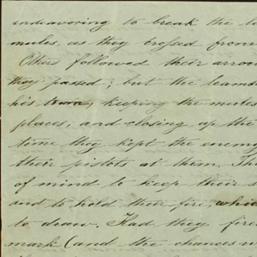 endeavoring to break the
mules, as they crossed from
Others followed their
they passed; but the
his train, keeping the mules
places, and closing up the
time they kept the enemy
their pistols at them. Th
of mind to keep their s
and to hold their fire, whi
to draw. Had they fire
mark (and the chances w